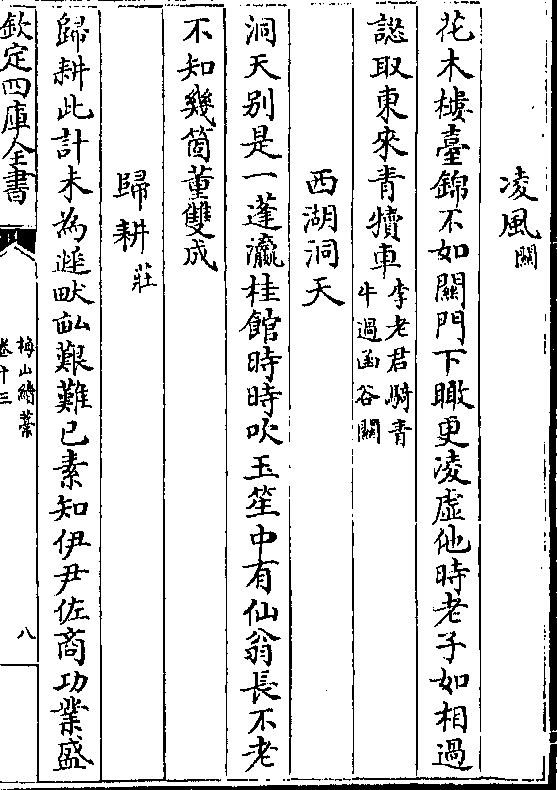 凌風闗
花木樓臺錦不如闗門下瞰更凌虛他時老子如相過
認取東來青犢車李老君騎青
牛過函谷闗
西湖洞天
洞天别是一蓬瀛桂館時時吹玉笙中有仙翁長不老
不知幾箇董雙成
歸耕莊
歸耕此計未為遲畎畝艱難已素知伊尹佐商功業盛
欽定四庫全書
梅山續藁
卷十三
八